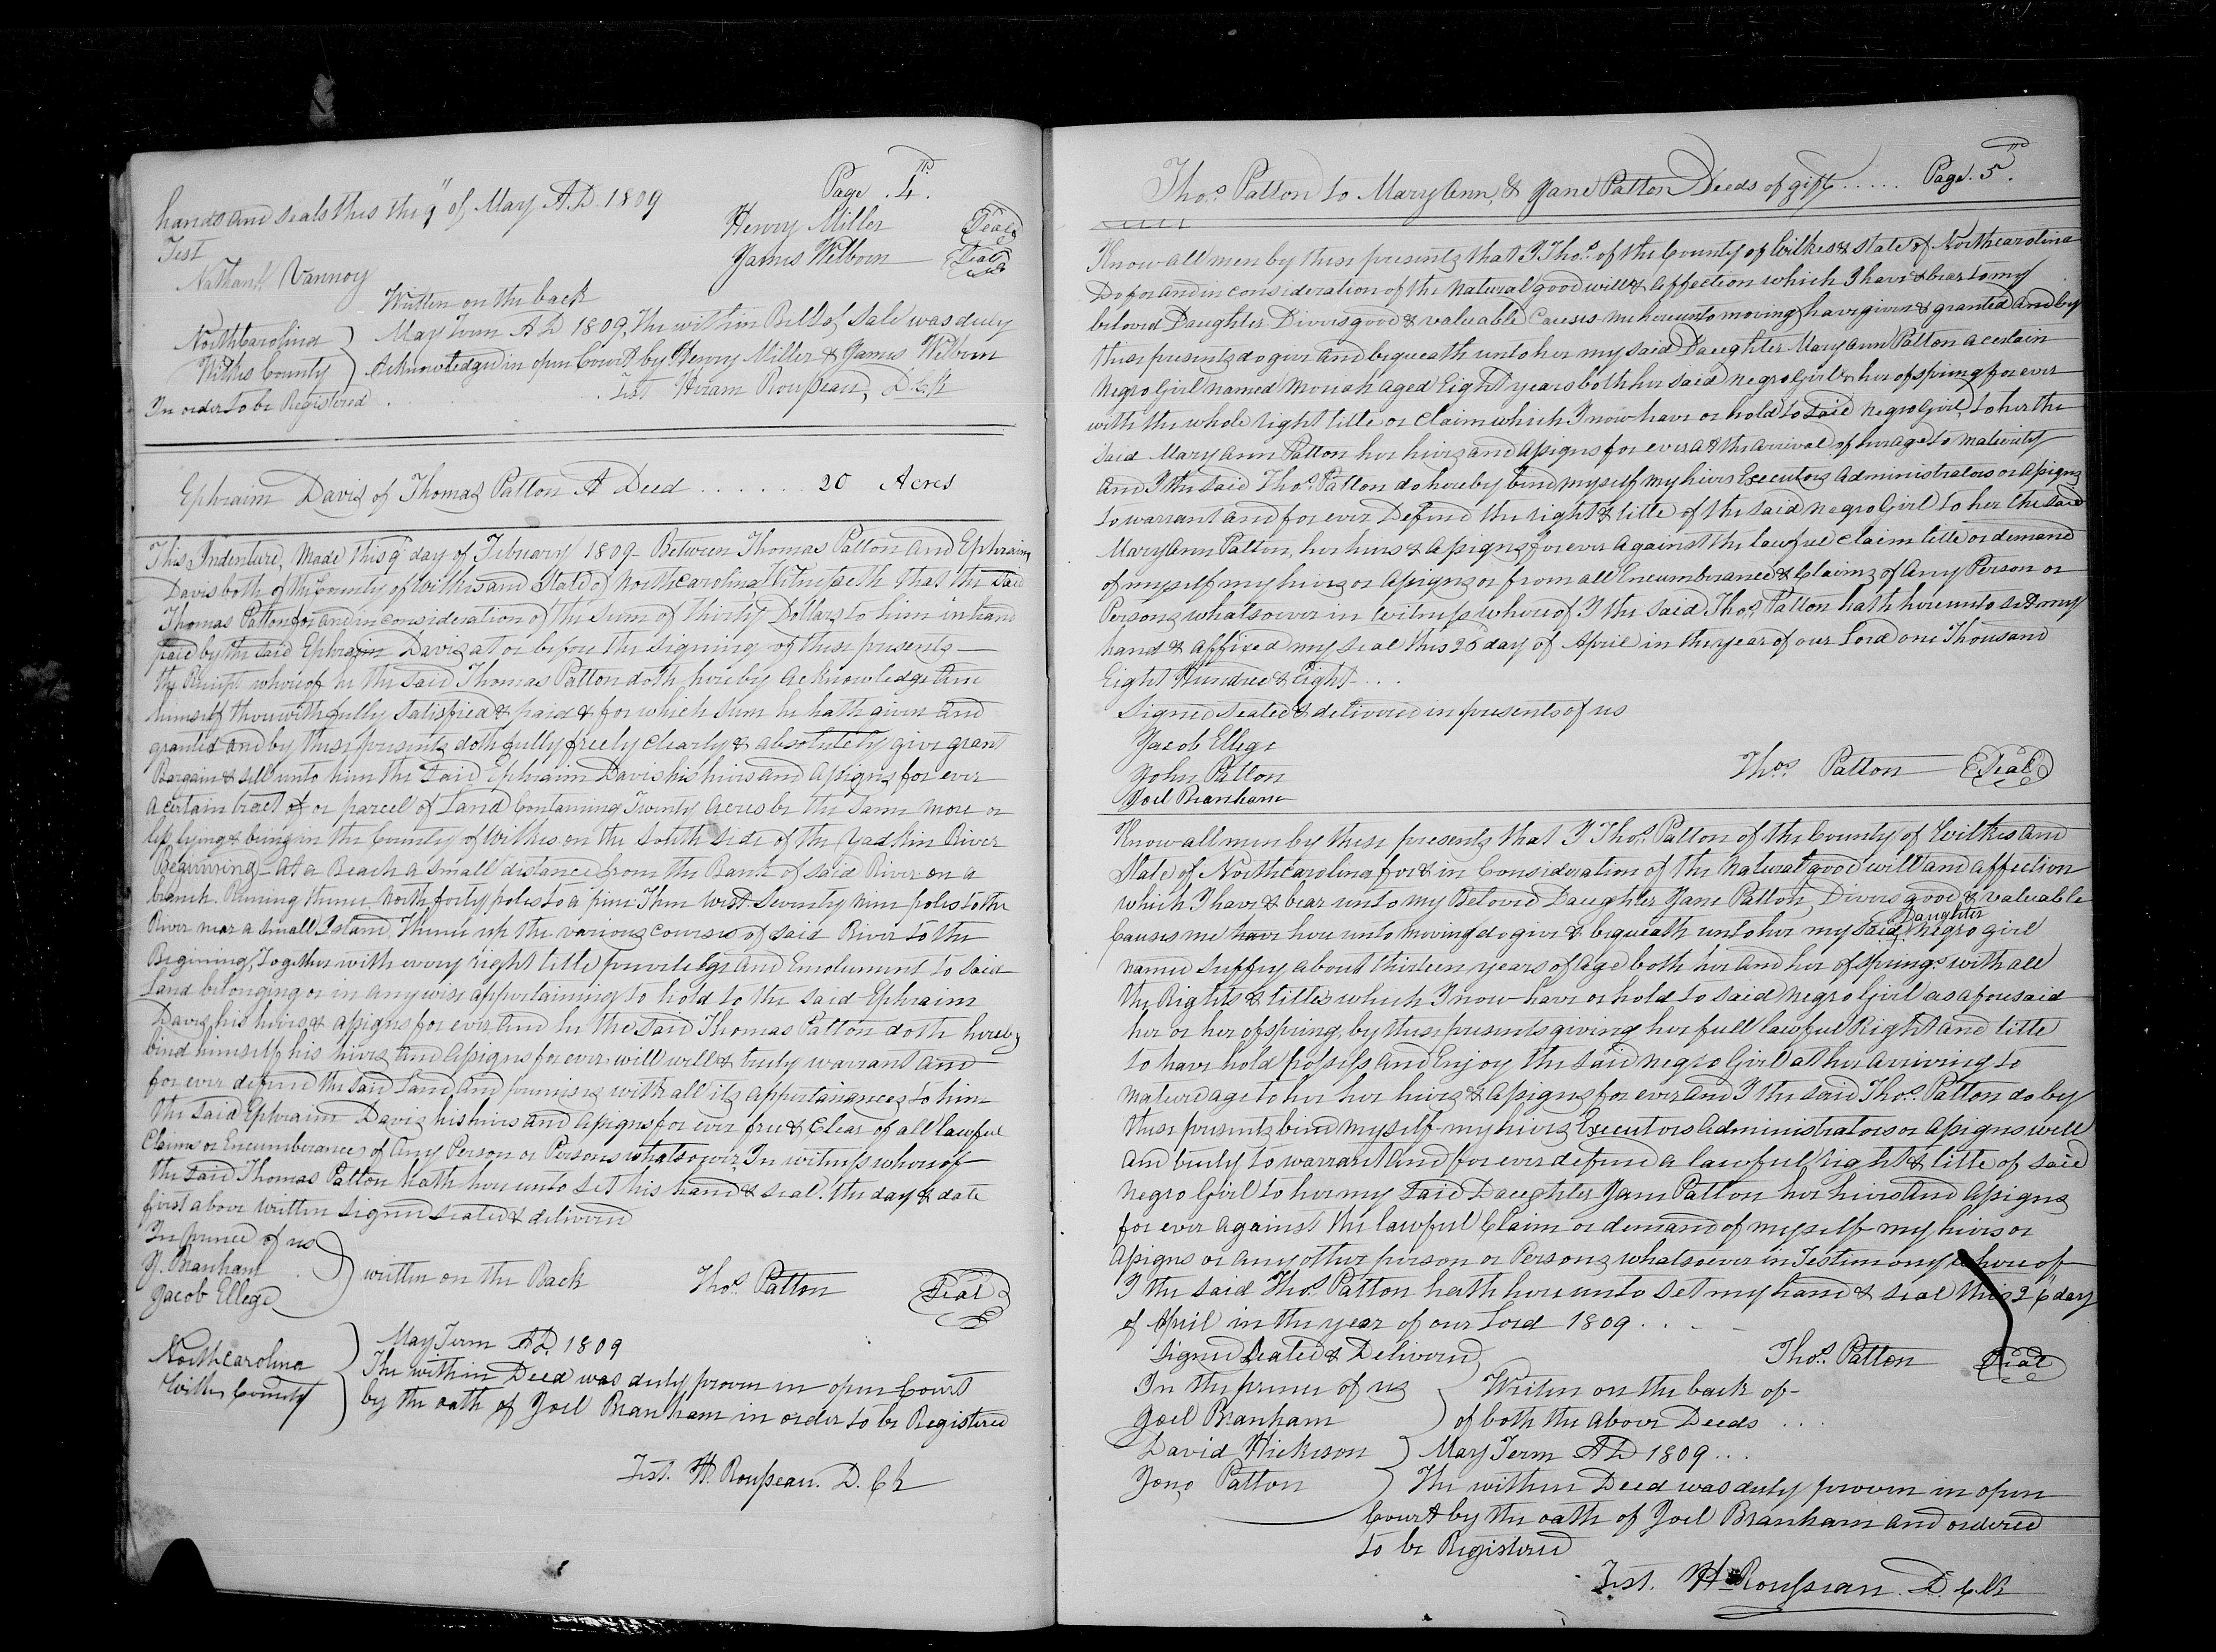 Page. 4.
hands and seals this the 9 of May A.D. 1809
Test
Henry Miller Seal
James Welborn Seal
Nathanl Vannoy
Written on the back
Northcarolina May Term A D 1809, The within Bill of Sale was duly
Wilkes County Acknowledged in open Court by Henry Miller & James Welborn
In order to be Registered . . Test Hiram Rousseau, D. C. k
Ephraim Davis of Thomas Patton A Deed . . . . . . 20 Acres
This Indenture, Made this 9 day of February 1809 - Between Thomas Patton and Ephraim
Davis both of the County of Wilkes and State of Northcarolina, Witnesseth that the said
Thomas Patton for and in consideration of the sum of Thirty Dollars to him in hand
paid by the said Ephraim Davis at or before the signing of these presents—
the Receipt whereof he the said Thomas Patton doth hereby acknowledge and
himself therewith fully satisfied & paid & for which sum he hath given and
granted and by these presents doth fully freely clearly & absolutely give grant
Bargain & sell unto him the said Ephraim Davis his heirs and assigns for ever
a certain tract of or parcel of Land Containing Twenty Acres be the same more or
less lying & being in the County of Wilkes on the South side of the Yadkin River
Beginning - at a Beach a small distance from the Bank of said River on a
branch. Runing thence North forty poles to a pine Then West Seventy nine poles to the
River near a small Island, Thence up the various courses of said River to the
Begining, Together with every right title priveledge and Emolument to said
Land belonging or in anywise appertaining to hold to the said Ephraim
Davis his heirs & assigns for ever and he the said Thomas Patton doth hereby
bind himself, his heirs and assigns for ever will well & truly warrant and
for ever defend the said Land and premises with all its appertainances to him
the said Ephraim Davis his heirs and assigns for ever free & Clear of all lawful
Claims or Encumberances of any Person or Persons whatsoever, In witness whereof
the said Thomas Patton hath here unto set his hand & seal. the day & date
first above written signed sealed & delivered
In presence of us
J. Branham written on the Back Thos. Patton Seal
Jacob Ellege
May Term A D. 1809
Northcarolina The within Deed was duly proven in open Court
Wilkes County by the oath of Joel Branham in order to be Registered
Test. H. Rousseau. D. C k
Thos. Patton to Mary Ann, & Jane Patton Deeds of gift . . . . . Page. 5.
Know all men by these presents that I Thos. of the County of Wilkes & state of Northcarolina
Do for and in consideration of the natural good will & affection which I have & bear to my
beloved Daughter Divers good & valuable Causes me hereunto moving have given & granted and by
these presents do give and bequeath unto her my said Daughter Mary Ann Patton a certain
Negro Girl named Moriah aged Eight years both her said negro Girl & her ofspring for ever
with the whole right title or claim which I now have or hold to said negro Girl, to her the
said Mary Ann Patton her heirs and assigns for ever at the arrival of her age to maturity
and I the said Thos. Patton do hereby bind myself my heirs Executors Administrators or assigns
to warrant and for ever Defend the right & title of the said negro Girl to her the said
Mary Ann Patton, her heirs & assigns for ever against the lawful claim title or demand
of myself my heirs or assigns or from all Encumberance & Claims of any Person or
Persons whatsoever in witness whereof I the said Thos. Patton hath hereunto set my
hand & affixed my seal this 26 day of April in the year of our Lord one Thousand
Eight Hundred & Eight - . . .
Signed sealed & delivered in presents of us
Jacob Ellege
John Patton Thos. Patton Seal
Joel Branham
Know all men by these presents that I Thos. Patton of the County of Wilkes and
State of Northcarolina for & in Consideration of the Natural good will and affection
which I have & bear unto my Beloved Daughter Jane Patton, Divers good & valuable
Causes me have here unto moving do give & bequeath unto her my said Daughter negro girl
named Suffry about thirteen years of age both her and her ofsprings with all
the Rights & titles which I now have or hold to said negro Girl as aforesaid
her or her ofspring, by these presents giving her full lawful Right and title
to have hold possess and Enjoy the said negro Girl at her arriving to
mature age to her her heirs & assigns for ever and I the said Thos. Patton do by
these presents bind myself my heirs Executors Administrators or assigns will
and truly to warrant and for ever defend a lawful right & title of said
negro Girl to her my said Daughter Jane Patton her heirs and assigns
for ever against the lawful Claim or demand of myself my heirs or
assigns or any other person or Persons whatsoever in Testimony whereof
I the said Thos. Patton hath here unto set my hand & seal this 26 day
of April in the year of our Lord 1809 . . —
Signed Sealed & Delivered Thos. Patton Seal
In the presence of us Writen on the back of
Joel Branham of both the above Deeds . . .
David Hickerson May Term A D 1809 . . .
Jono Patton The within Deed was duly proven in open
Court by the oath of Joel Branham and ordered
to be Registered
Test. H Rousseau. D. C. k